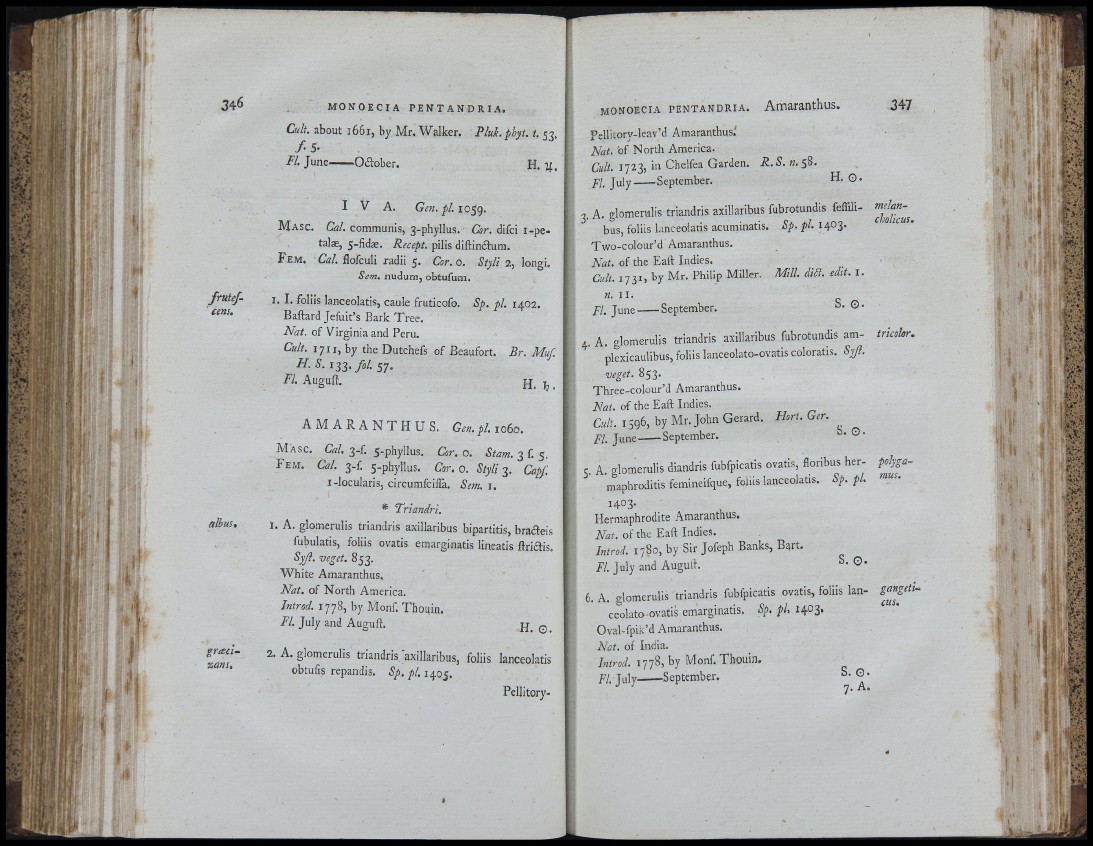 346
MONOECIA PENTANDRIA.
Cult. about 1661, by Mr. Walker. Pluk. phyt. t. 53.
f. 5.
Fl. June——October. H. ♃.
IVA. Gen. pl. 1059.
MASC. Cal. communis, 3-phyllus. Cor. diſci 1-pe-
talæ, 5-fidæ. Recept. pilis diſtinctum.
FEM. Cal. floſculi radii 5. Cor. 0. Styli 2, longi.
Sem. nudum, obtuſum.
fruteſ-
cens.
1. I. foliis lanceolatis, caule fruticoſo. Sp. pl. 1402.
Baſtard Jeſuit's Bark Tree.
Nat. of Virginia and Peru.
Cult. 1711, by the Dutcheſs of Beaufort. Br. Muſ.
H. S. 133. fol. 57.
Fl. Auguſt. H. ♄.
AMARANTHUS. Gen. pl. 1060.
MASC. Cal. 3-ſ. 5-phyllus. Cor. 0. Stam. 3 ſ. 5.
FEM. Cal. 3-ſ. 5-phyllus. Cor. 0. Styli 3. Capſ.
1-locularis, circumſciſſa. Sem. 1.
* Triandri.
albus.
1. A. glomerulis triandris axillaribus bipartitis, bracteis
ſubulatis, foliis ovatis emarginatis lineatis ſtrictis.
Syſt. veget. 853.
White Amaranthus.
Nat. of North America.
Introd. 1778, by Monſ. Thouin.
Fl. July and Auguſt. H. ☉.
græci-
zans.
2. A. glomerulis triandris axillaribus, foliis lanceolatis
obtuſis repandis. Sp. pl. 1405.
Pellitory-
MONOECIA PENTANDRIA. Amaranthus. 347
Pellitory-leav'd Amaranthus.
Nat. of North America.
Cult. 1723, in Chelſea Garden. R. S. n. 58.
Fl. July——September. H. ☉.
3. A. glomerulis triandris axillaribus ſubrotundis ſeſſili-
bus, foliis lanceolatis acuminatis. Sp. pl. 1403.
melan-
cholicus.
Two-colour'd Amaranthus.
Nat. of the Eaſt Indies.
Cult. 1731, by Mr. Philip Miller. Mill. dict. edit. 1.
n. 11.
Fl. June——September. S. ☉.
4. A. glomerulis triandris axillaribus ſubrotundis am-
plexicaulibus, foliis lanceolato-ovatis coloratis. Syſt.
veget. 853.
tricolor.
Three-colour'd Amaranthus.
Nat. of the Eaſt Indies.
Cult. 1596, by Mr. John Gerard. Hort. Ger.
Fl. June——September. S. ☉.
5. A. glomerulis diandris ſubſpicatis ovatis, floribus her-
maphroditis femineiſque, foliis lanceolatis. Sp. pl.
1403.
polyga-
mus.
Hermaphrodite Amaranthus.
Nat. of the Eaſt Indies.
Introd. 1780, by Sir Joſeph Banks, Bart.
Fl. July and Auguſt. S. ☉.
6. A. glomerulis triandris ſubſpicatis ovatis, foliis lan-
ceolato-ovatis emarginatis. Sp. pl. 1403.
gangeti-
cus.
Oval-ſpik'd Amaranthus.
Nat. of India.
Introd. 1778, by Monſ. Thouin.
Fl. July——September. S. ☉.
7. A.